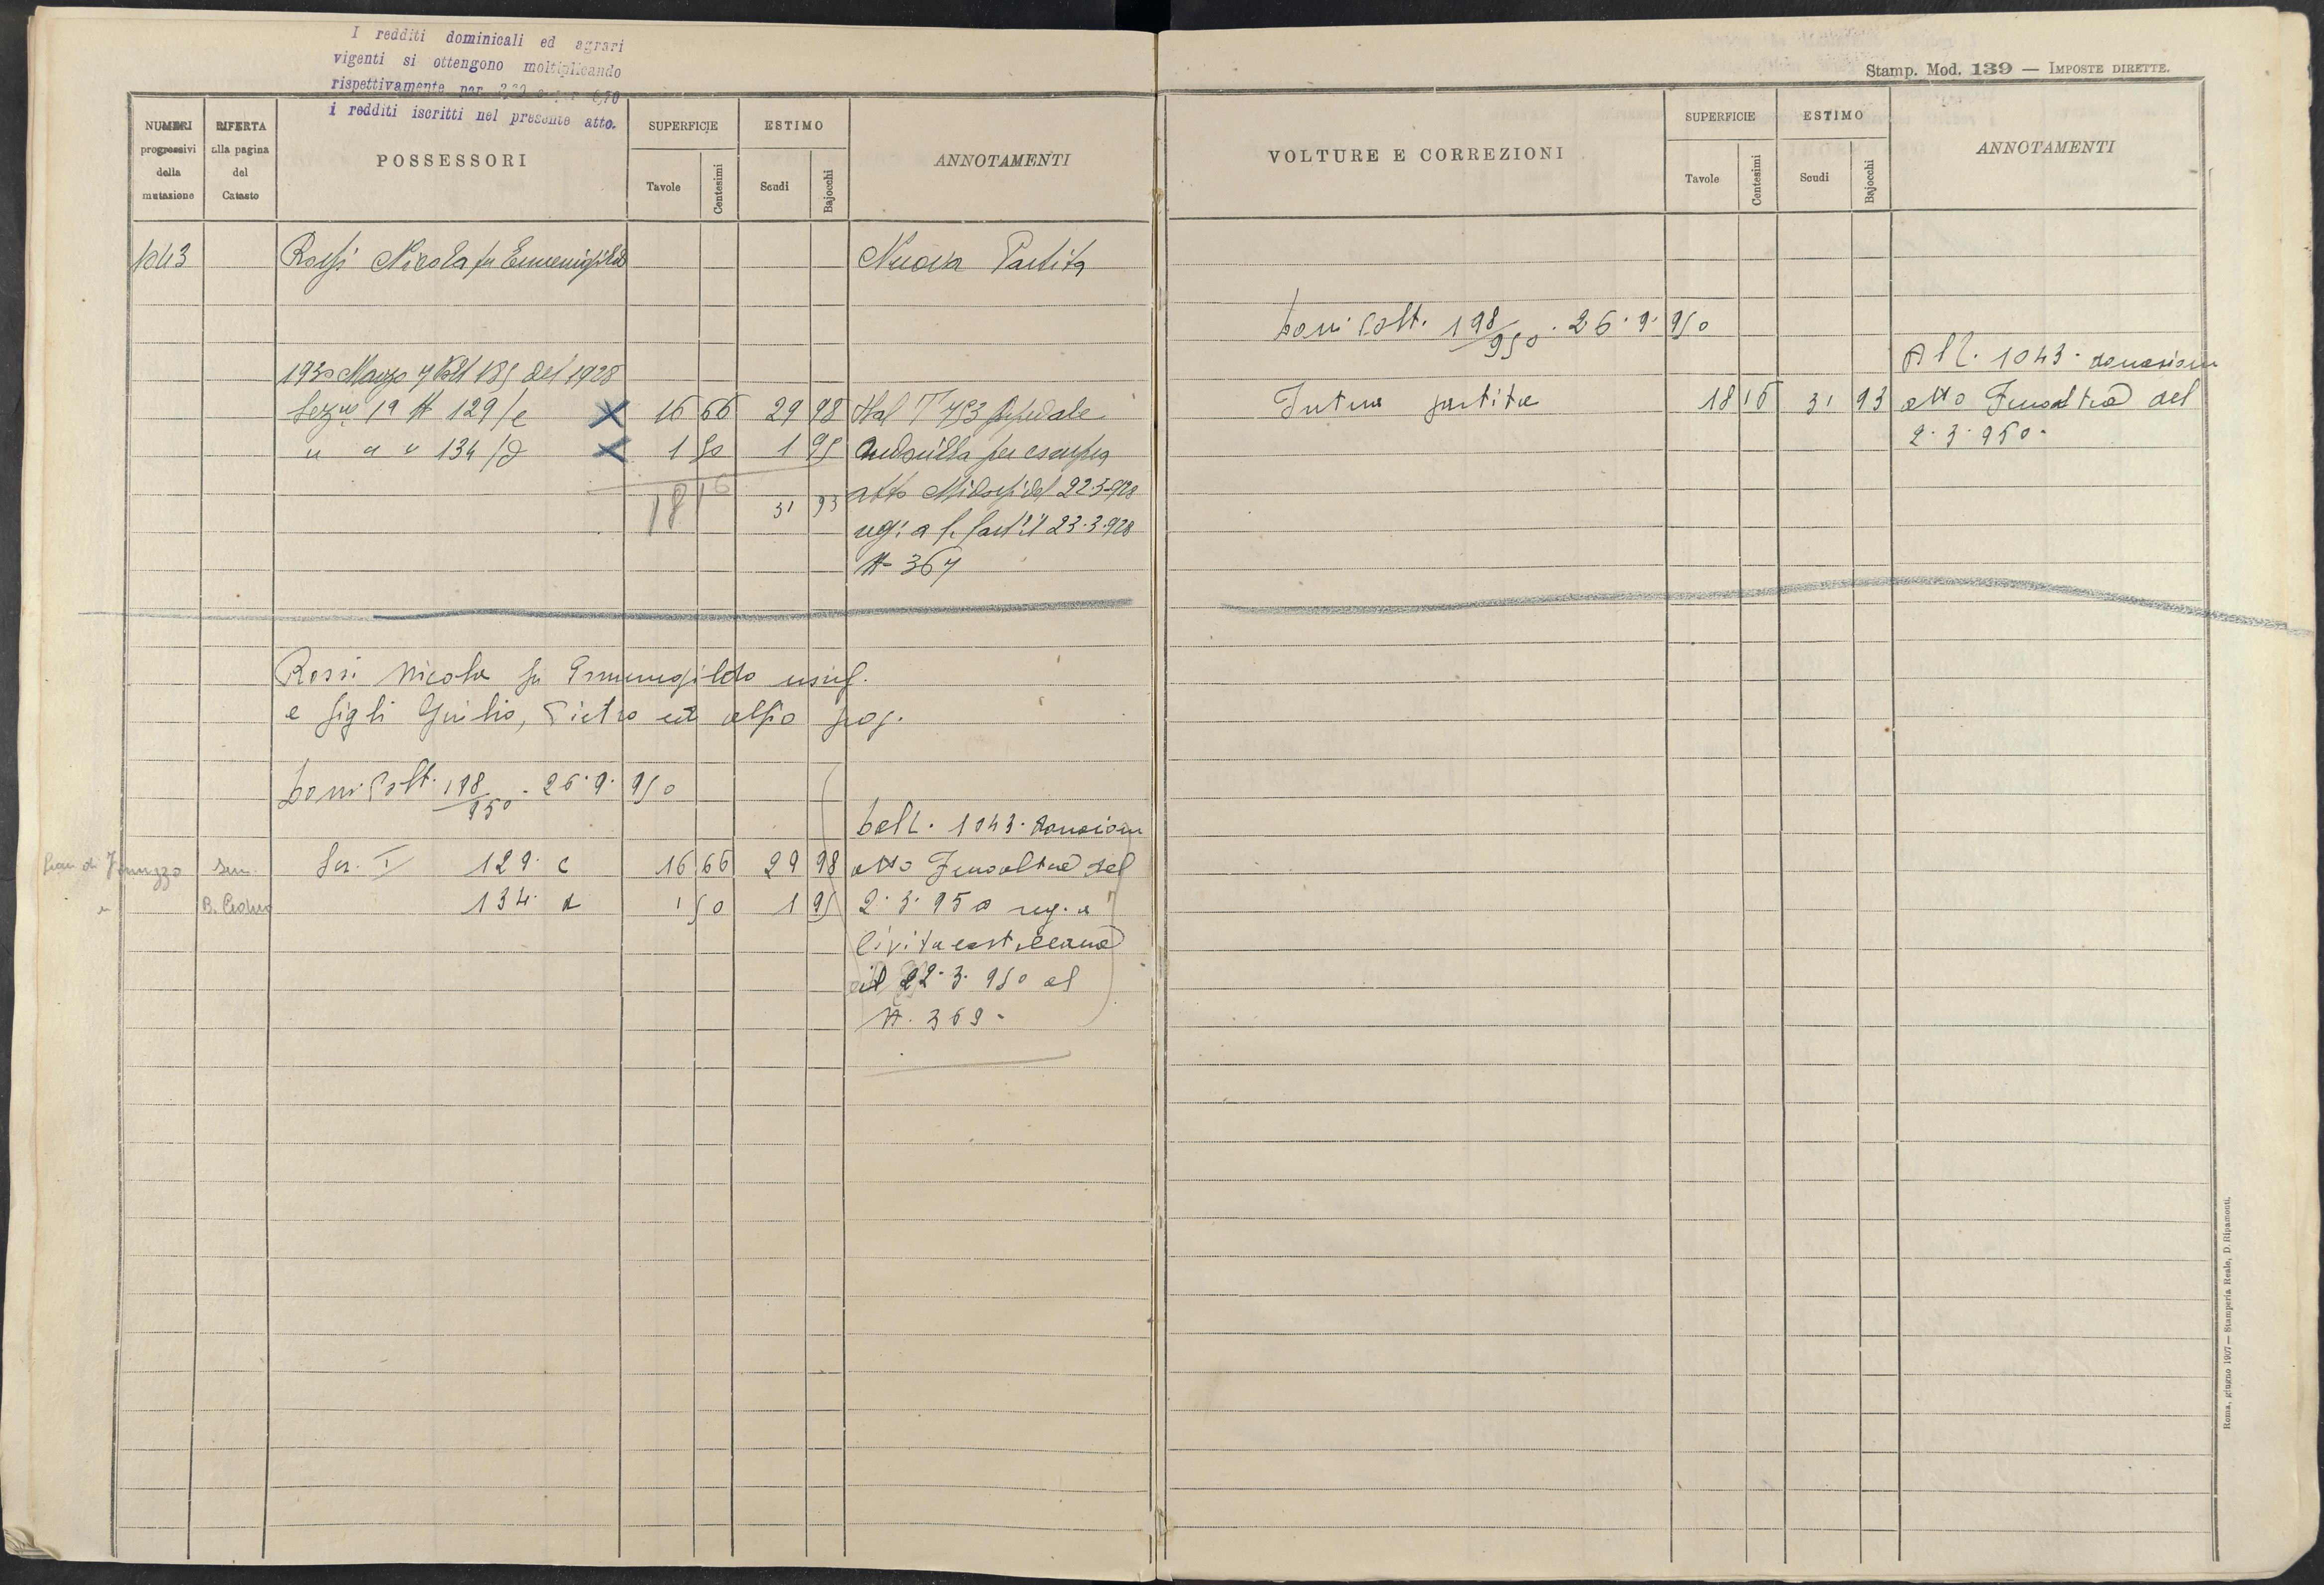 I redditi dominicali ed agrari
vigenti si ottengono moltiplicando
rispettivamente per
i redditi iscritti nel presente atto.
NUMERI progressivi della mutazione
RIFERTA alla pagina del Catasto
POSSESSORI
SUPERFICIE
Tavole
Centesimi
ESTIMO
Scudi
Bajocchi
ANNOTAMENTI
1043 Rossi Nicola fu Ermenegildo Nuova Partita
1930 Marzo 7 Volt 185 del 1928
Sez. 1a N 129/c X 16 66 29 98 Dal T 793
" " " 134/d X 1 50 1 95 per
18 16 31 93 atto del 22-3-928
reg: a il 23.3.928
N- 367
Rossi Nicola fu Ermenegildo usuf.
e figli Giulio, Pietro ed Alfio prop.
198/950 - 26.9.950
1043. donazione
di sem. Sez. I 129. c 16 66 29 98 atto del
" B. Ceduo 134. d 1 50 1 95 2.3.950 reg. a
Civitacastellana
il 22.3.950 al
N. 369-
Stamp. Mod. 139 — IMPOSTE DIRETTE.
VOLTURE E CORREZIONI
SUPERFICIE
Tavole
Centesimi
ESTIMO
Scudi
Bajocchi
ANNOTAMENTI
198/950 . 26.9.950
All. 1043. donazione
Intera partita 18 16 31 93 atto del
2.3.950-
Roma, giugno 1907 — Stamperia Reale, D. Ripamonti.